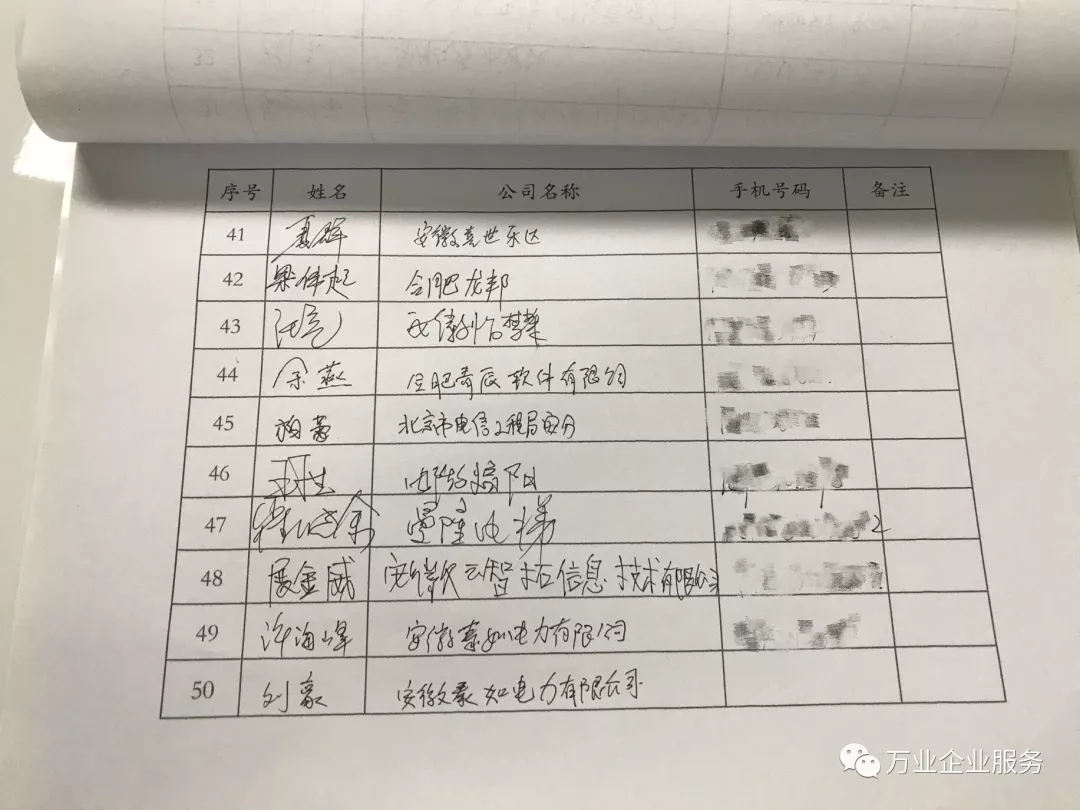 序号 姓名 公司名称 手机号码 备注
41 夏辉 安徽喜世乐达
42 梁伟起 合肥龙邦
43
44 余燕 合肥奇辰软件有限公司
45 北京市电信工程局安分
46
47 曼隆电梯
48 屈金威 安徽云智拓信息技术有限公司
49 许海峰 安徽豪如电力有限公司
50 刘豪 安徽豪如电力有限公司
万业企业服务